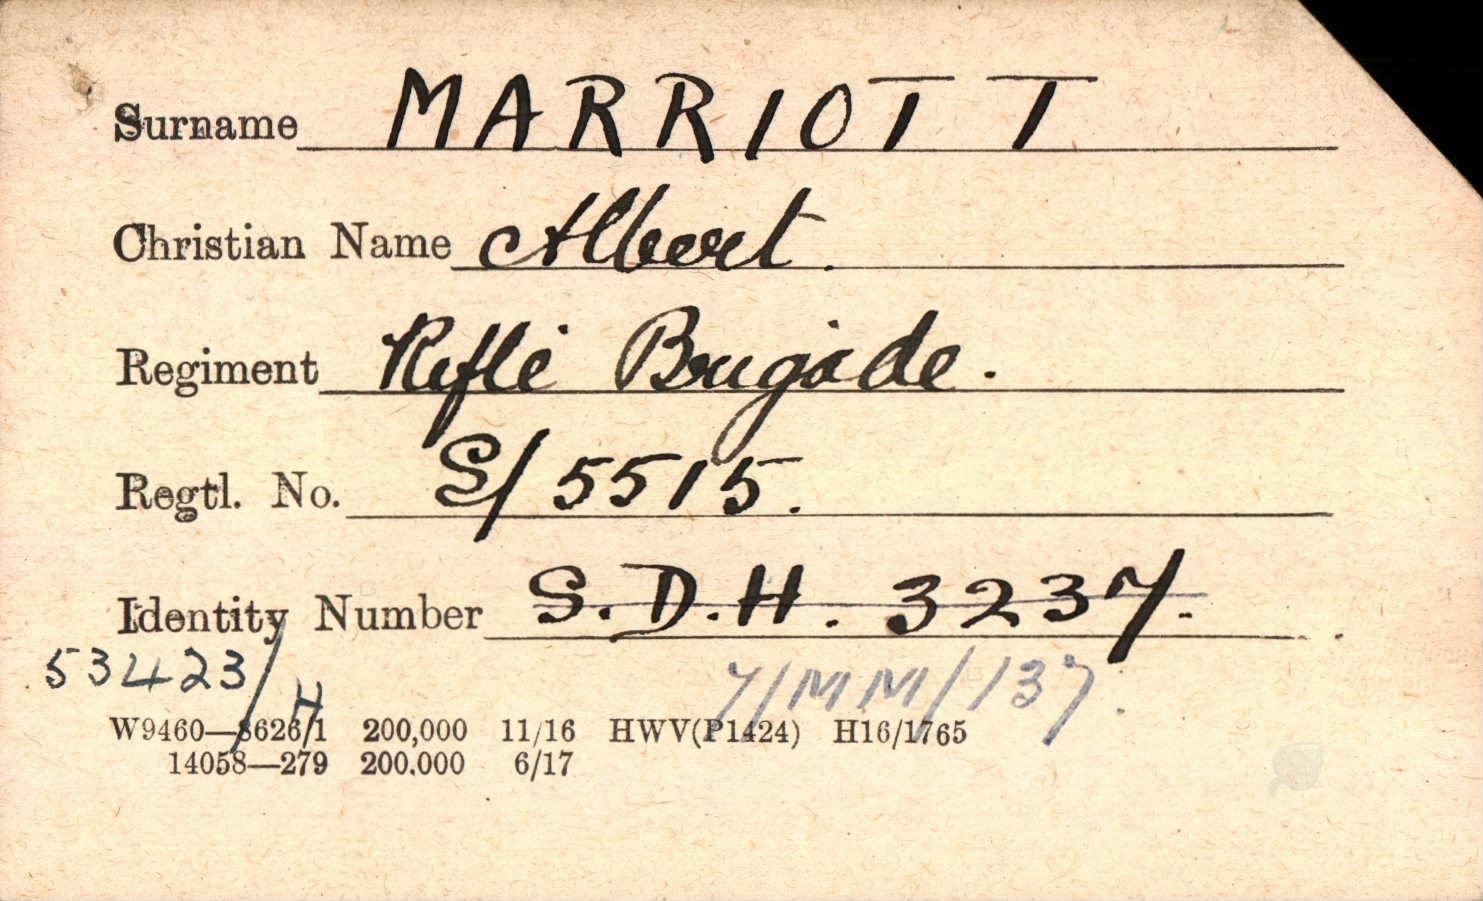 Surname MARRIOTT
Christian Name Albert.
Regiment Rifle Brigade.
Regtl. No. S/5515.
Identity Number S.D.H. 3237.
53423/H
7/MM/137.
W9460—8626/1 200,000 11/16 HWV(P1424) H16/1765
14058—279 200,000 6/17